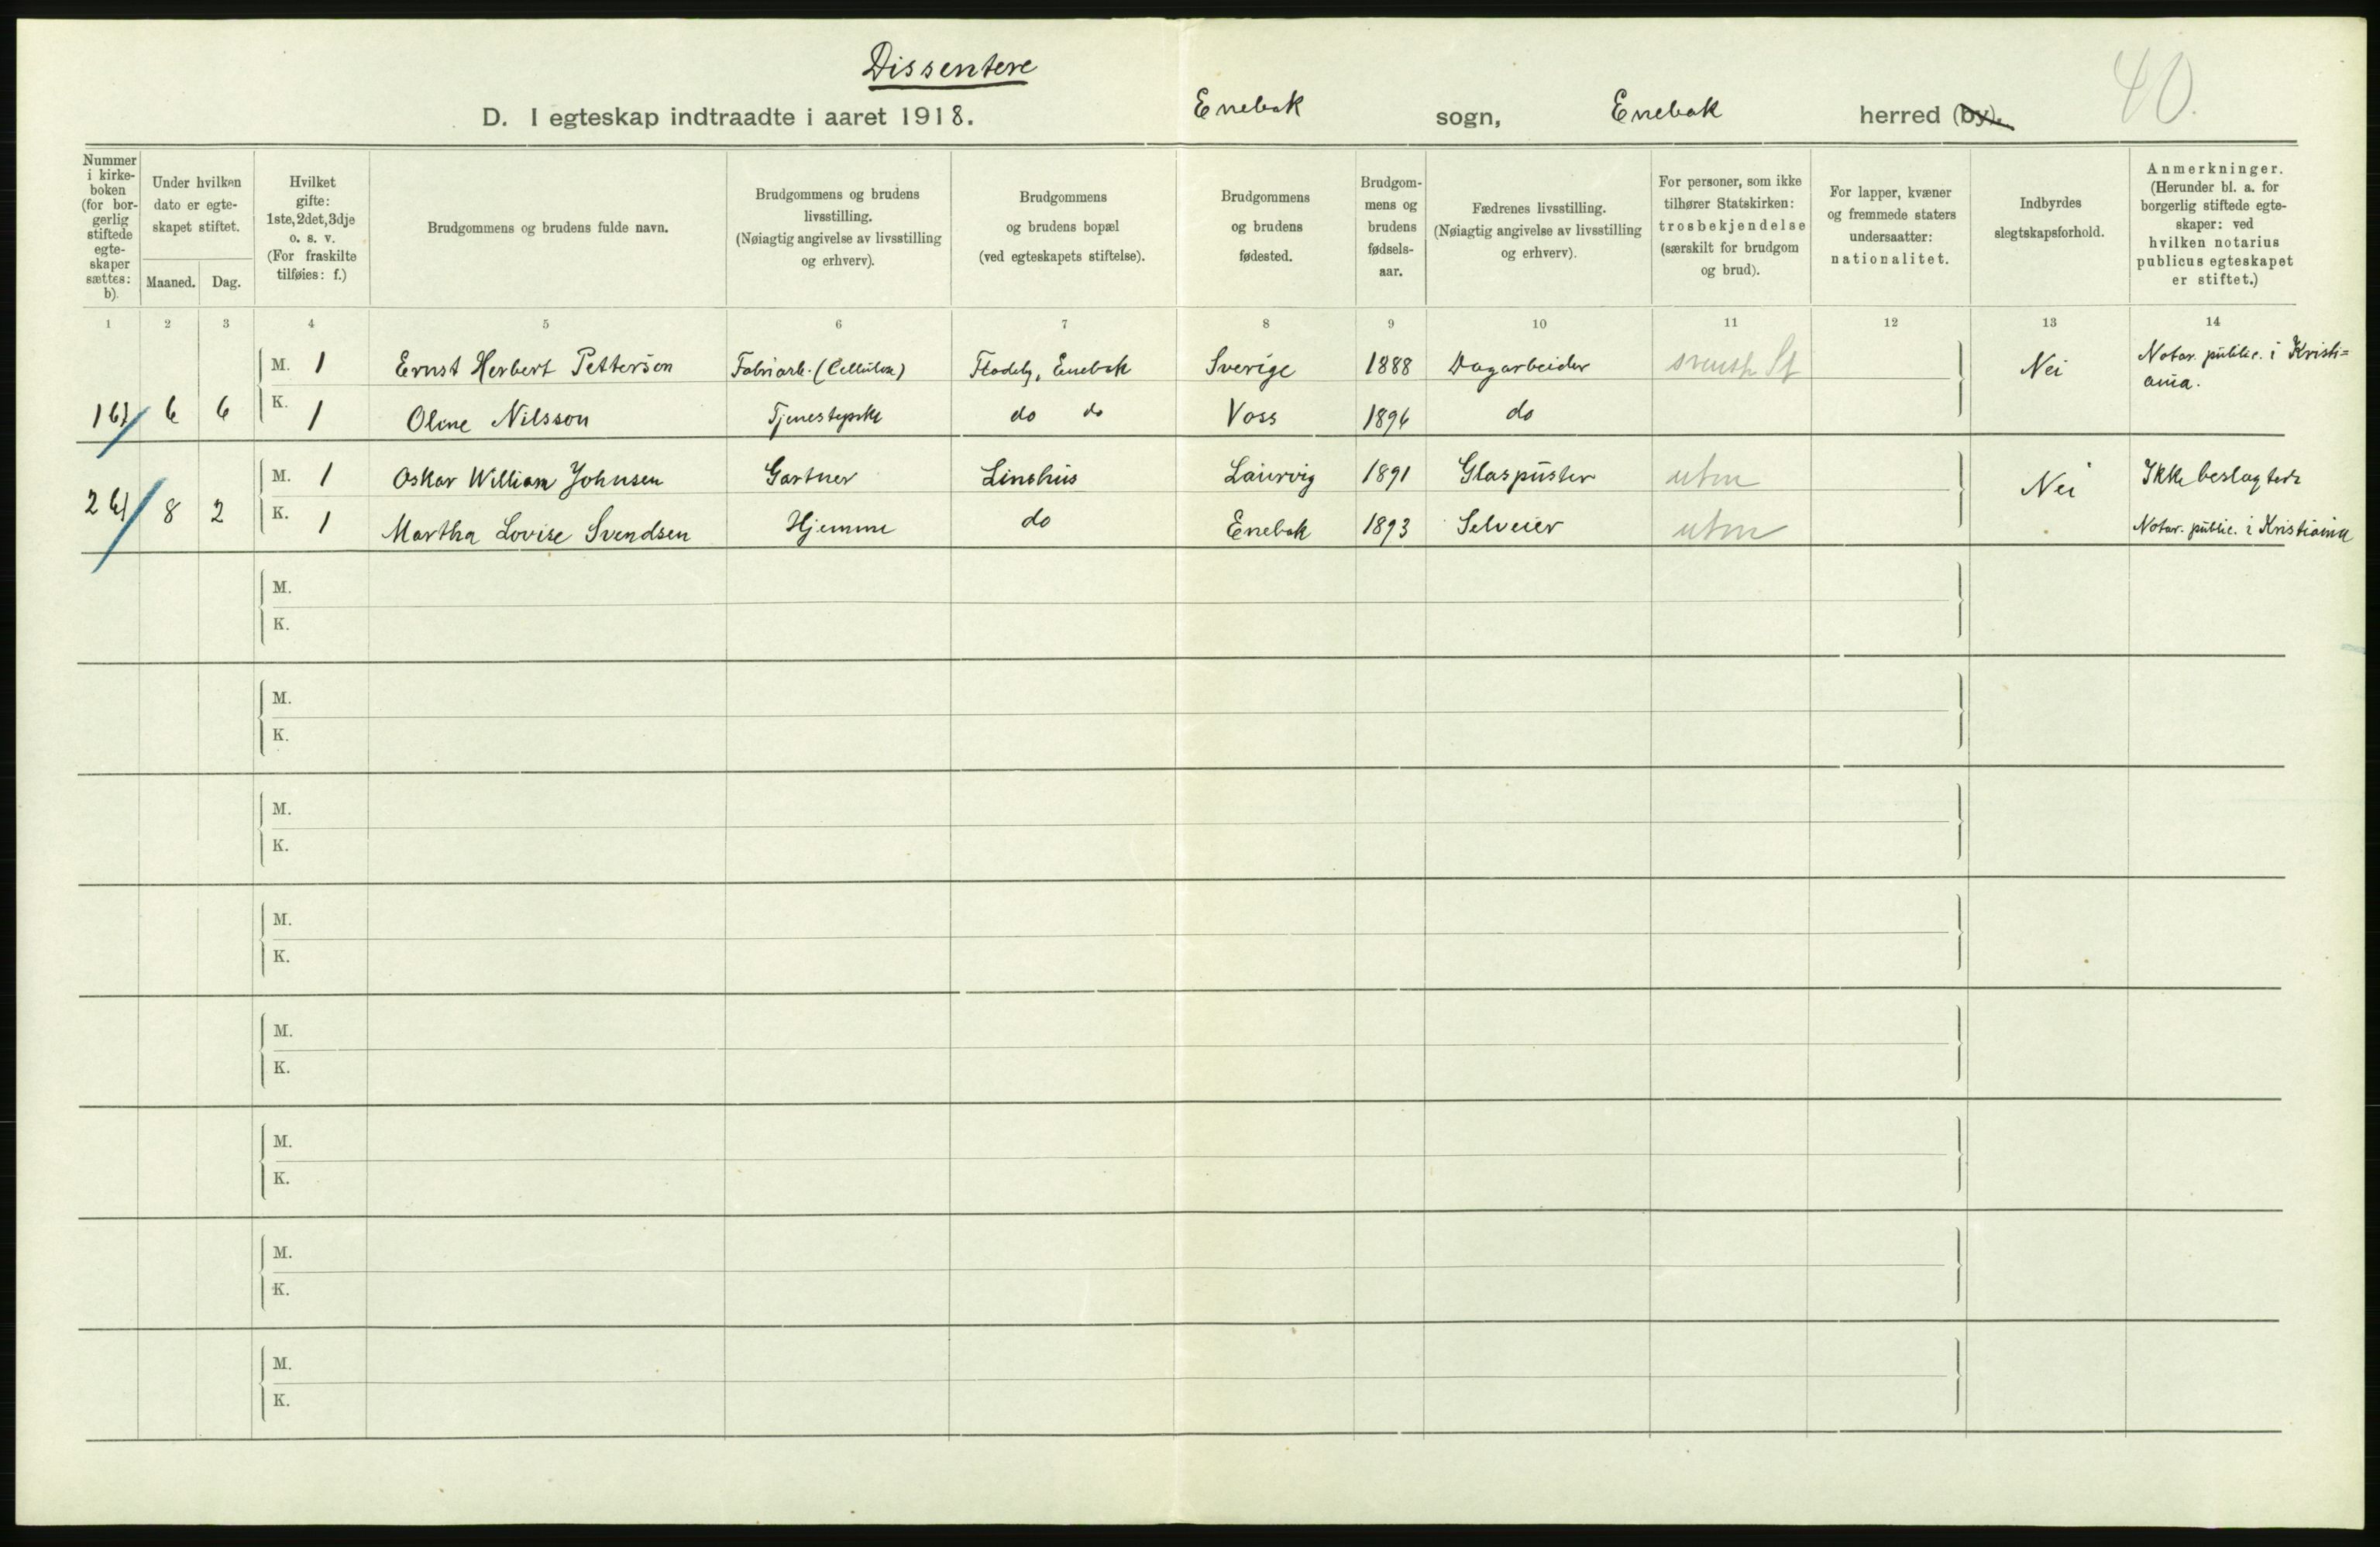 Dissentere
40.
D. I egteskap indtraadte i aaret 1918. Enebak sogn, Enebak herred (by).
Nummer i kirkeboken (for borgerlig stiftede egteskaper sættes: b).
Under hvilken dato er egteskapet stiftet.
Maaned. Dag.
Hvilket gifte: 1ste, 2det, 3dje o. s. v. (For fraskilte tilføies: f.)
Brudgommens og brudens fulde navn.
Brudgommens og brudens livsstilling. (Nøiagtig angivelse av livsstilling og erhverv).
Brudgommens og brudens bopæl (ved egteskapets stiftelse).
Brudgommens og brudens fødested.
Brudgommens og brudens fødselsaar.
Fædrenes livsstilling. (Nøiagtig angivelse av livsstilling og erhverv).
For personer, som ikke tilhører Statskirken: trosbekjendelse (særskilt for brudgom og brud).
For lapper, kvæner og fremmede staters undersaatter: nationalitet.
Indbyrdes slegtskapsforhold.
Anmerkninger. (Herunder bl. a. for borgerlig stiftede egteskaper: ved hvilken notarius publicus egteskapet er stiftet.)
1 2 3 4 5 6 7 8 9 10 11 12 13 14
M. 1 Ernst Herbert Petterson Fabriarb. (Cellulose) Enebak Sverige 1888 Dagarbeider svensk St Nei Notar. public. i Kristi=
ania.
1 b) 6 6 K. 1 Oline Nilsson do do Voss 1896 do
M. 1 Oskar William Johnsen Gartner Linshus Laurvig 1891 Glaspuster utm Nei Ikke beslagtede
2 b) 8 2 K. 1 Martha Lovise Svendsen Hjemme do Enebak 1893 Selveier utm Notar. public. i Kristiania
M.
K.
M.
K.
M.
K.
M.
K.
M.
K.
M.
K.
M.
K.
M.
K.